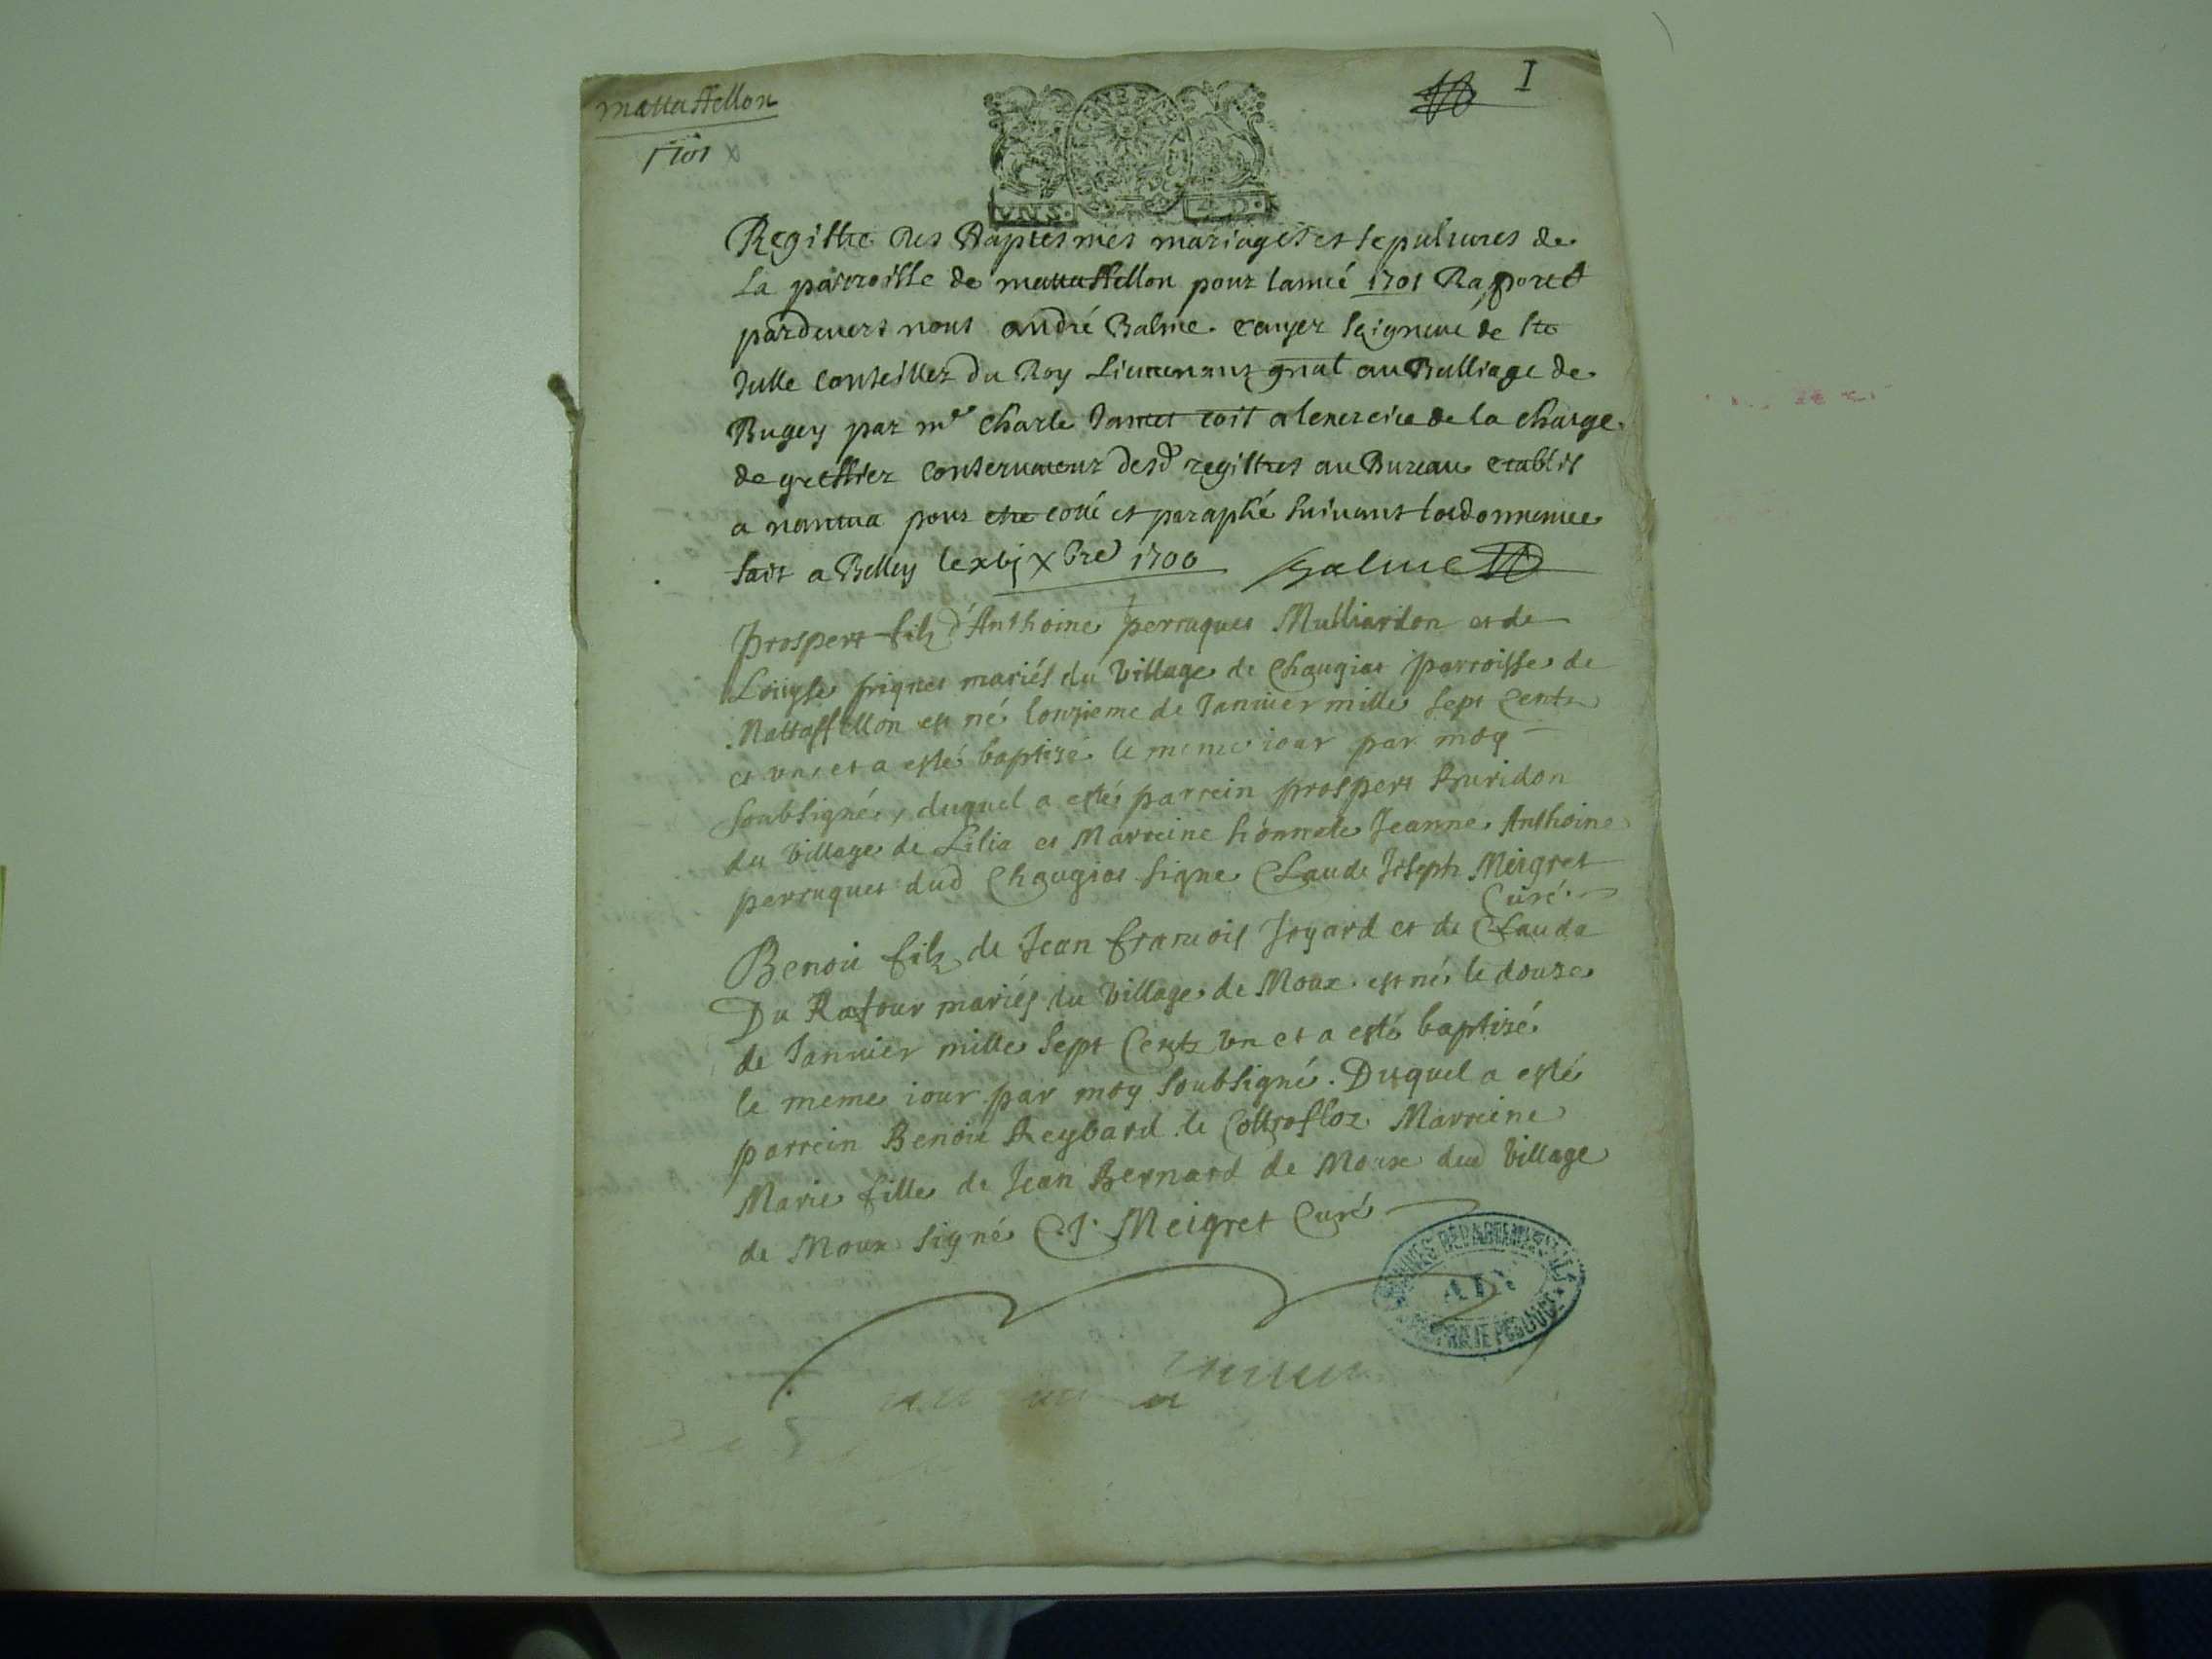 mattaffellon
1701
I
Registre des Baptesmes mariages et sepultures de
La parroisse de mattaffellon pour lanneé 1701 Raporté
pardevers nous andré Balme ecuyer seigneur de ste
Julle conseiller du Roy Lieutenant gnal au Balliage de
Bugey par me Charle Jantet coit a lexercice de la charge
de greffier conservateur desd registres au Bureau etablit
a nantua pour etre cotté et paraphé suivant lordonnance
fait a Belley le xbj xbre 1700 Balme
Prospert filz d'Anthoine perruquet Mulliardon et de
Loüyse friquet mariés du village de Chougiat parroisse de
Mattaffellon est né lonzieme de Janvier mille sept Centz
et vn, et a esté baptizé le meme iour par moy
soubsigné, duquel a esté parrein prospert Buridon
du village de Lilia et Marreine honnete Jeanne Anthoine
perruquet dud Chougiat signe Claude Joseph Meigret
Curé
Benoit filz de Jean francois Joyard et de Clauda
Du Rafour mariés du village de Moux est né le douze
de Janvier mille sept Centz vn et a esté baptizé
le meme iour par moy soubsigné. Duquel a esté
parrein Benoit Reybard de Marreine
Marie fille de Jean Bernard de Moux dud village
de Moux signé C. J. Meigret Curé
ARCHIVES DÉPARTEMENTALES
AIN